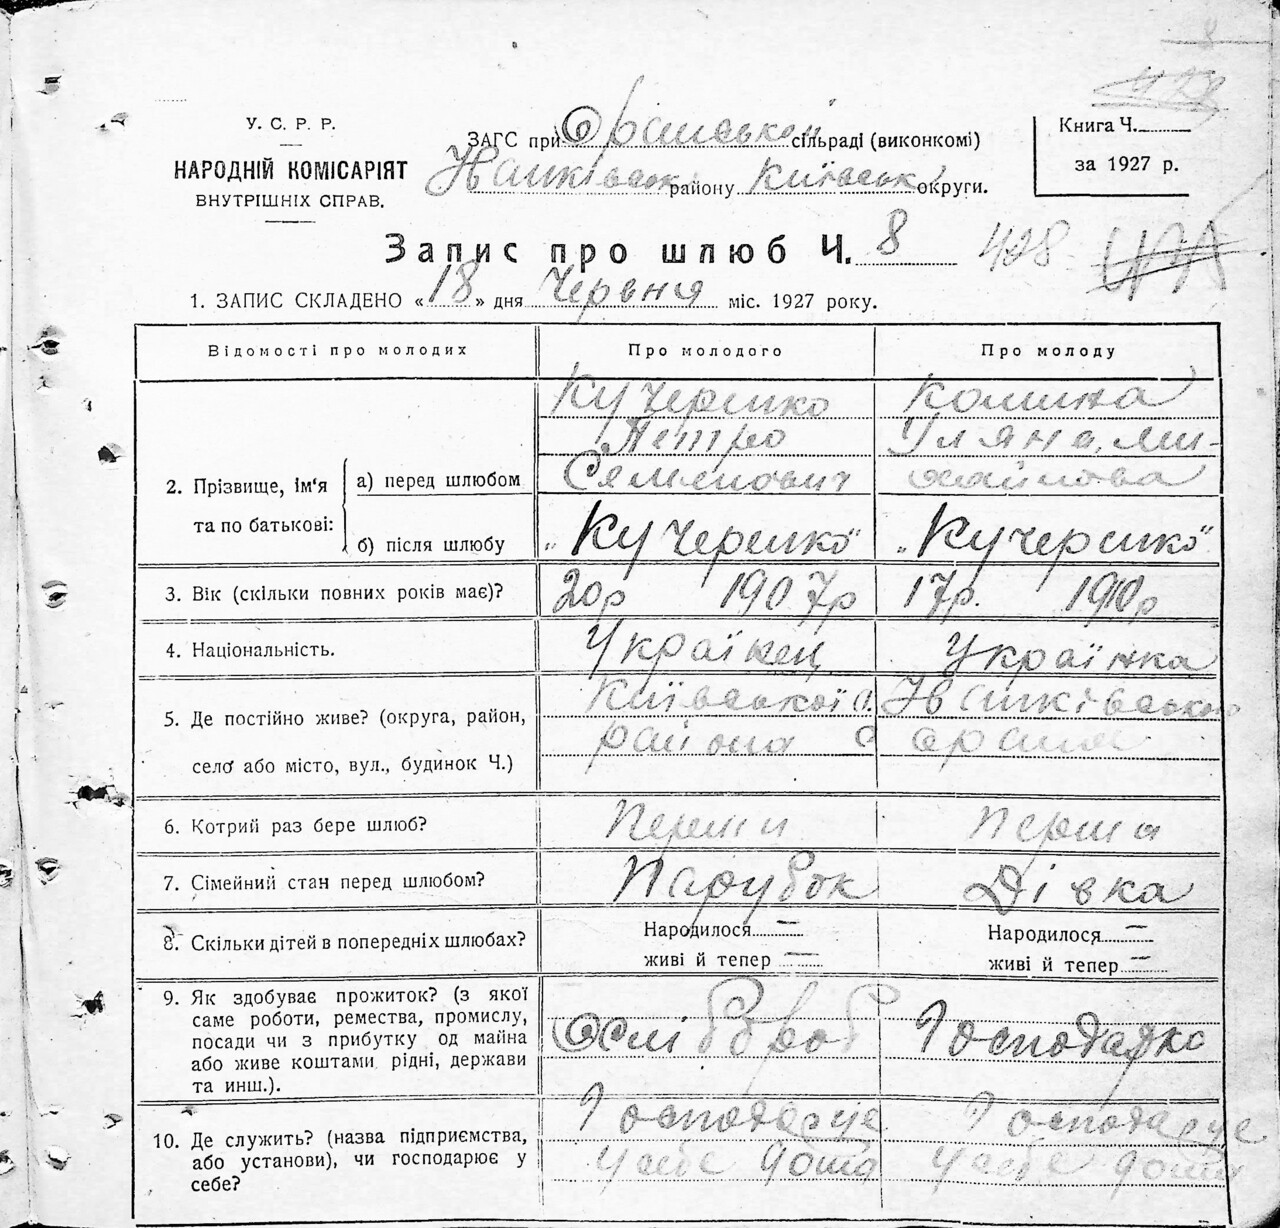 У. С. Р. Р.
НАРОДНІЙ КОМІСАРІЯТ
ВНУТРІШНІХ СПРАВ.
ЗАГС при Оранській сільраді (виконкомі)
Іванківськ району Київськ округи.
Книга Ч.
за 1927 р.
Запис про шлюб Ч. 8 428
1. ЗАПИС СКЛАДЕНО « 18 » дня Червня міс. 1927 року.
Відомості про молодих Про молодого Про молоду
2. Прізвище, ім'я та по батькові:
а) перед шлюбом
Кучеренко
Петро
Семенович
Уляна, Ми-
хайлова
б) після шлюбу „Кучеренко" „Кучеренко"
3. Вік (скільки повних років має)? 20р 1907р 17р. 1910р
4. Національність. Українец Українка
5. Де постійно живе? (округа, район,
село або місто, вул., будинок Ч.)
Київської О. Іванківського
района с Оране
6. Котрий раз бере шлюб? Перши перша
7. Сімейний стан перед шлюбом? Парубок Дівка
8. Скільки дітей в попередніх шлюбах?
Народилося — Народилося —
живі й тепер — живі й тепер —
9. Як здобуває прожиток? (з якої
саме роботи, ремества, промислу,
посади чи з прибутку од майна
або живе коштами рідні, держави
та инш.).
Господарка
10. Де служить? (назва підприємства,
або установи), чи господарює у
себе?
Господарує Господарує
у себе дома у себе дома